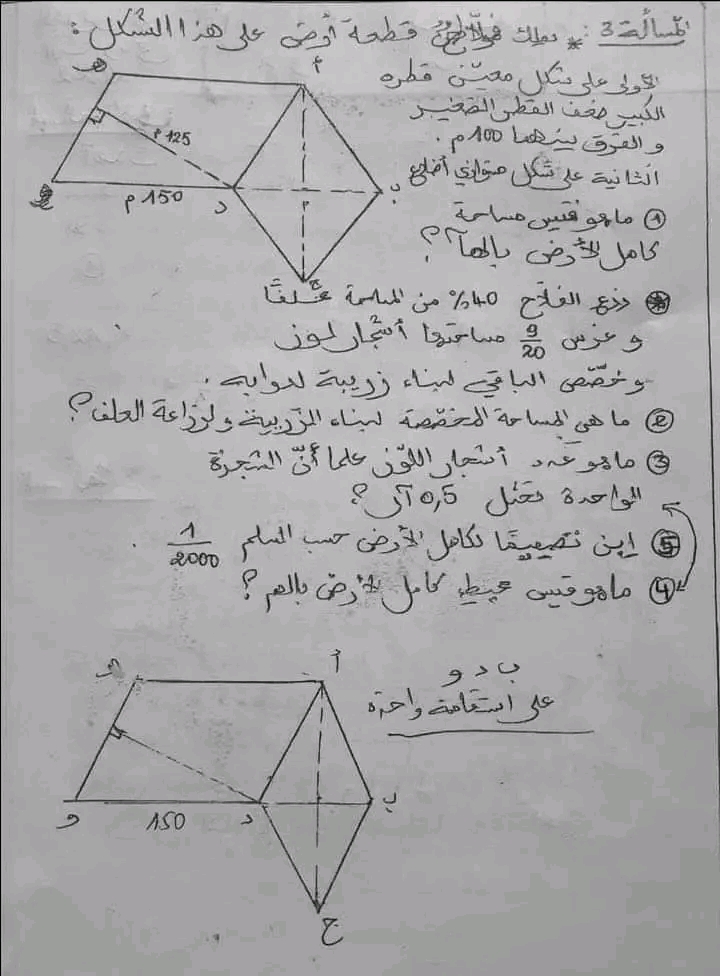 المسألة 3 : * يملك فلاح قطعة أرض على هذا الشكل :
الأولى على شكل معيّن قطره
الكبير ضعف القطر الصغير
و الفرق بينهما 100م .
الثانية على شكل متوازي أضلاع
① ما هو قيس مساحة
كامل الأرض بالهآ ؟
أ
ه
125 م
150 م
د
ب
م
ج
* زرع الفلاح 40% من المساحة علفًا
و غرس 9/20 مساحتها أشجار لوز
و خصّص الباقي لبناء زريبة لدوابه .
② ما هي المساحة المخصّصة لبناء الزريبة و لزراعة العلف ؟
③ ما هو عدد أشجار اللوز علما أنّ الشجرة
الواحدة تحتل 0,5 آر ؟
⑤ ابن تصميمًا لكامل الأرض حسب السلم 1/2000 .
④ ما هو قيس محيط كامل الأرض بالهم ؟
ب د و
على استقامة واحدة
أ
ه
و
150
د
ب
ج